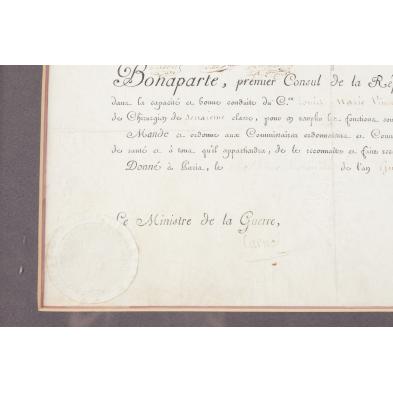 Bonaparte, premier Consul de la Rép
dans la capacité et bonne conduite du C.en Louis Marie
des Chirurgien de classe, pour en remplir les fonctions sou
Mande et ordonne aux Commissaires ordonnateurs et Com
de santé et à tous qu'il appartiendra, de le reconnaître et faire reco
Donné à Paris, le de l'an
Le Ministre de la Guerre,
Carnot